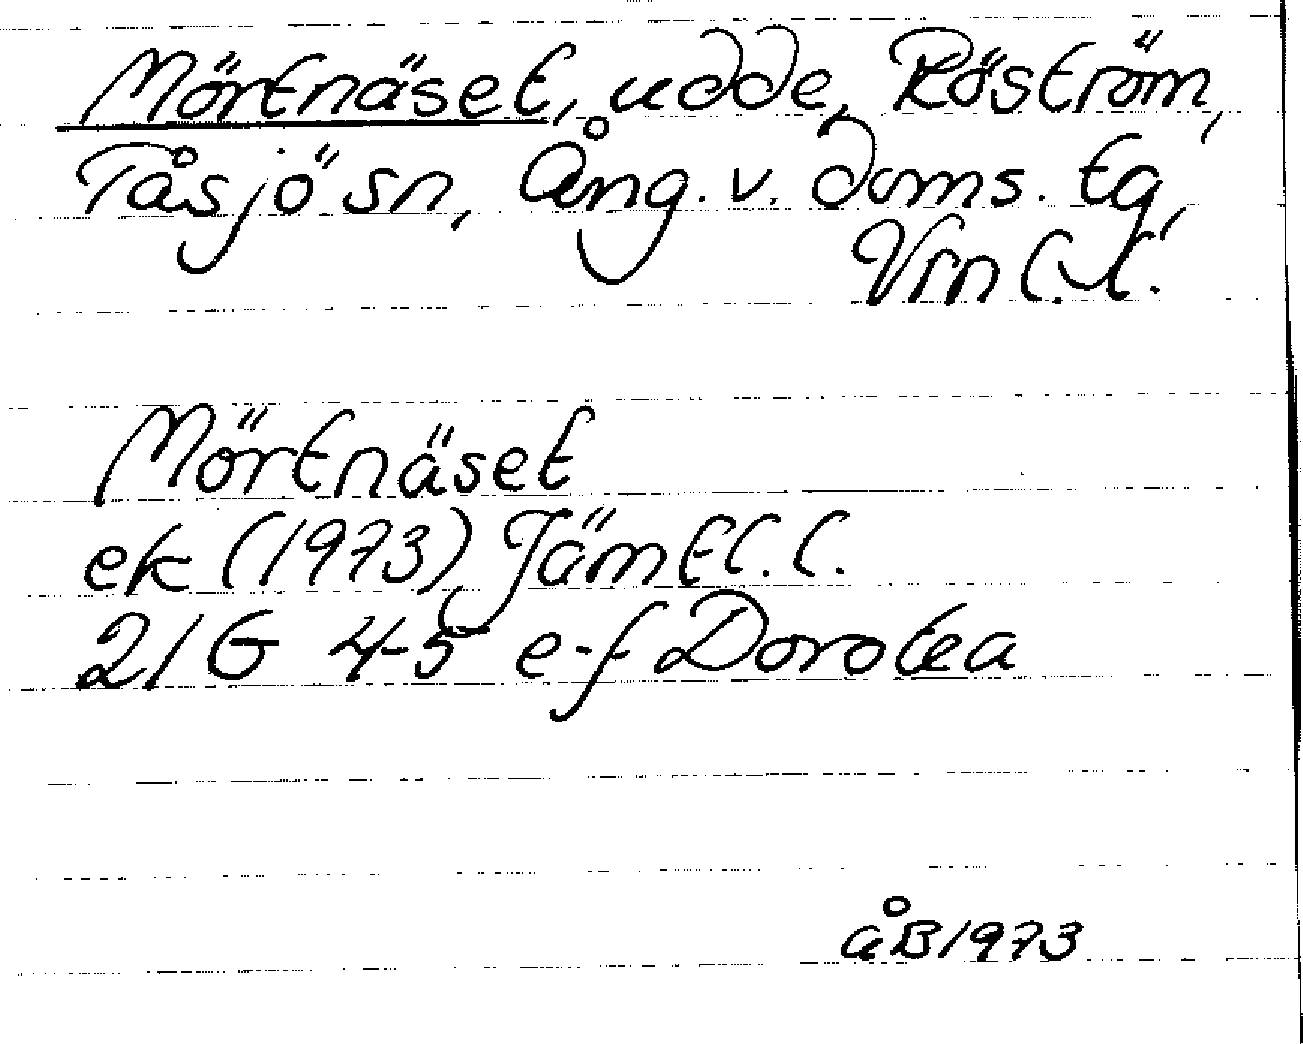 Mörtnäset, udde, Röström,
Tåsjö sn, Ång. v. doms. tg,
Vrn l. l.
Mörtnäset
ek (1973) Jämtl. l.
21 G 4-5 e-f Dorotea
åB 1973